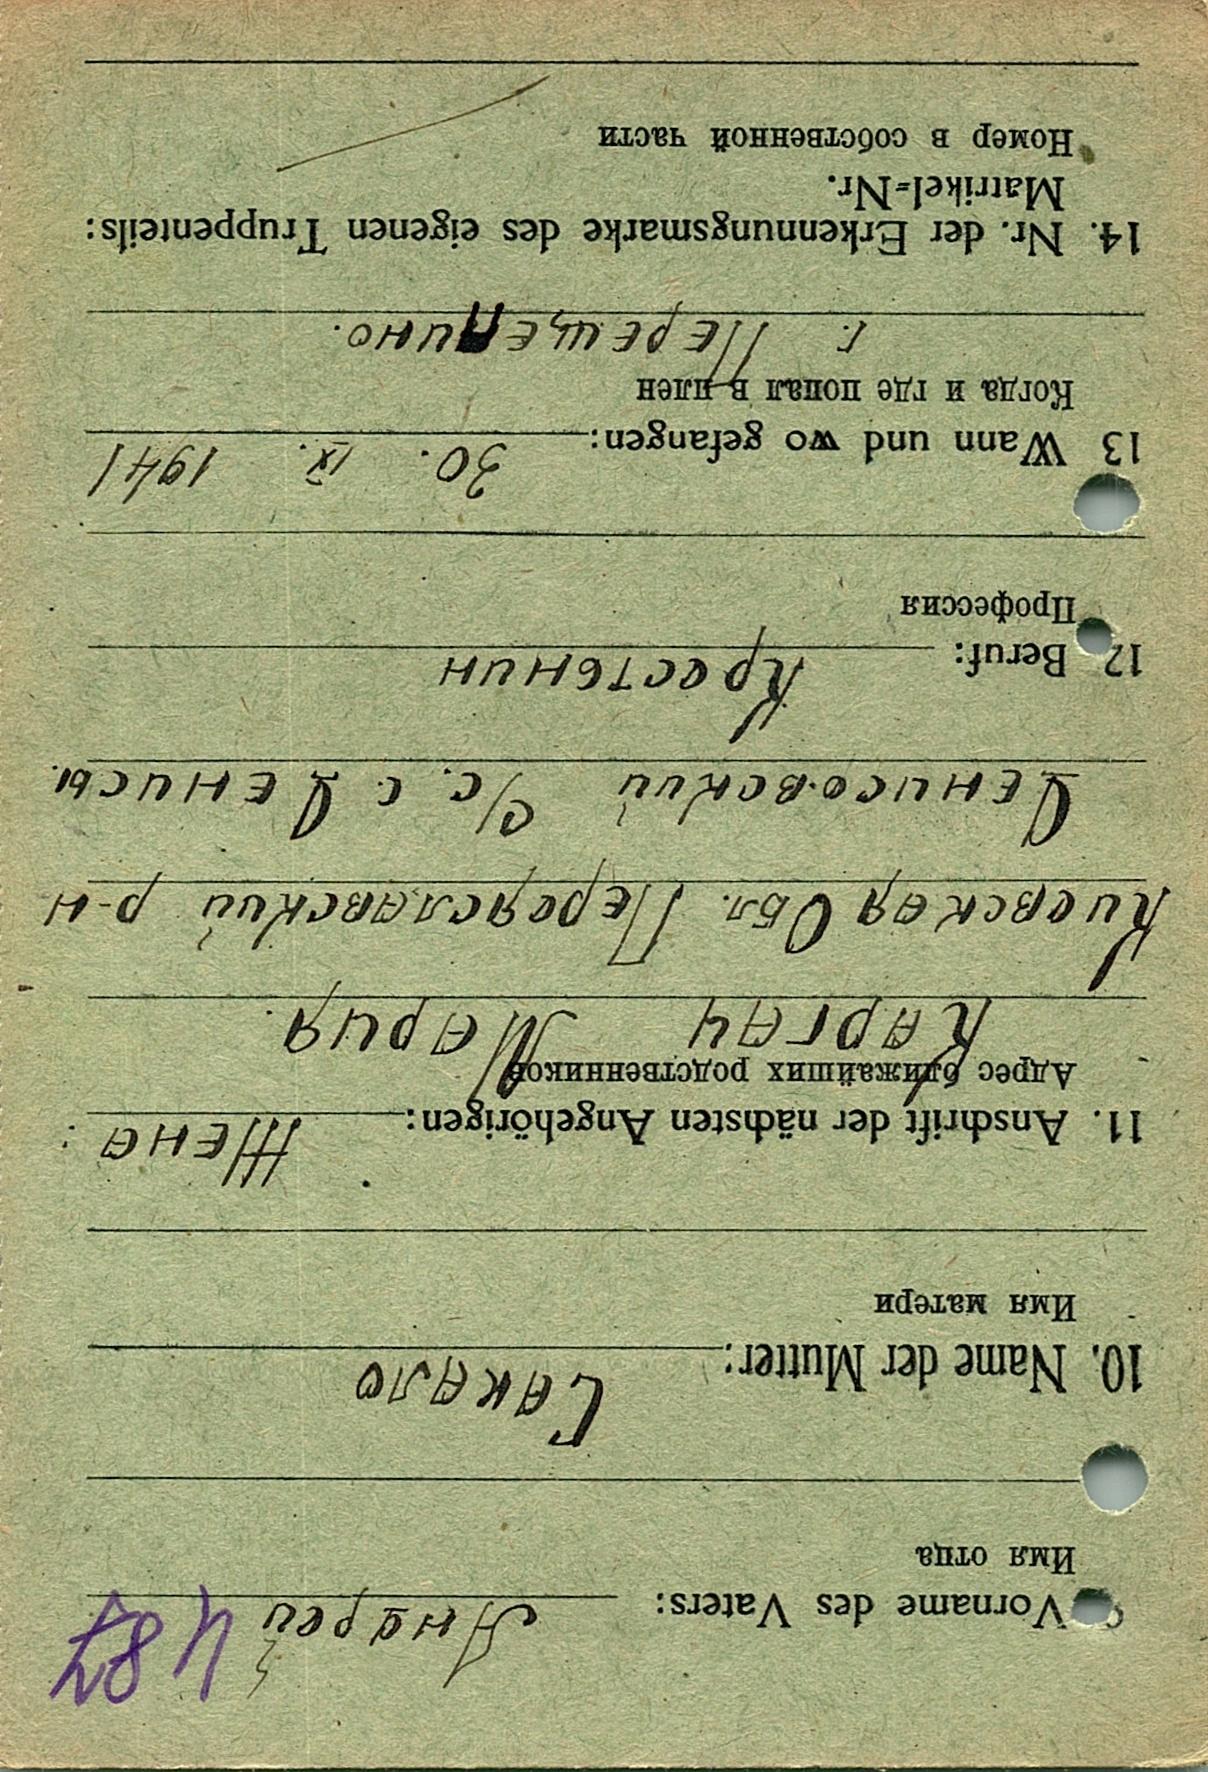 487
Vorname des Vaters: Андрей
Имя отца
10. Name der Mutter: Сакало
Имя матери
11. Anschrift der nächsten Angehörigen: Жена:
Адрес ближайших родственников
Каргач Мария.
Киевская Обл. Переяславский р-н
Денисовский с/с. с. Денисы.
12 Beruf: Крестьянин
Профессия
13 Wann und wo gefangen: 30. IX. 1941
Когда и где попал в плен
г. Перещепино.
14. Nr. der Erkennungsmarke des eigenen Truppenteils:
Matrikel=Nr.
Номер в собственной части